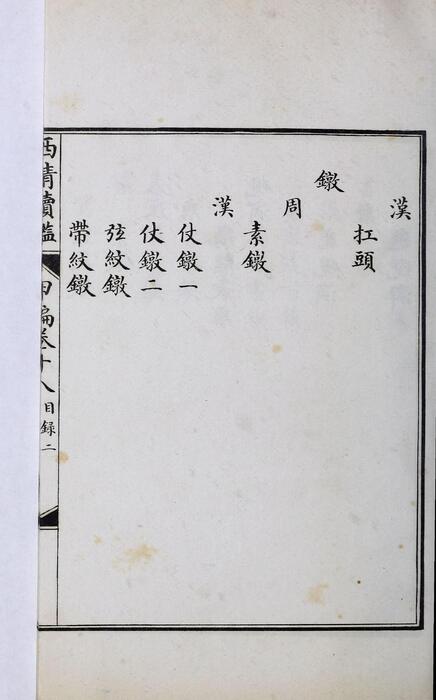 漢
扛頭
鐓
周
素鐓
漢
仗鐓一
仗鐓二
弦紋鐓
帶紋鐓
西清續鑑
甲編卷十八
目録二